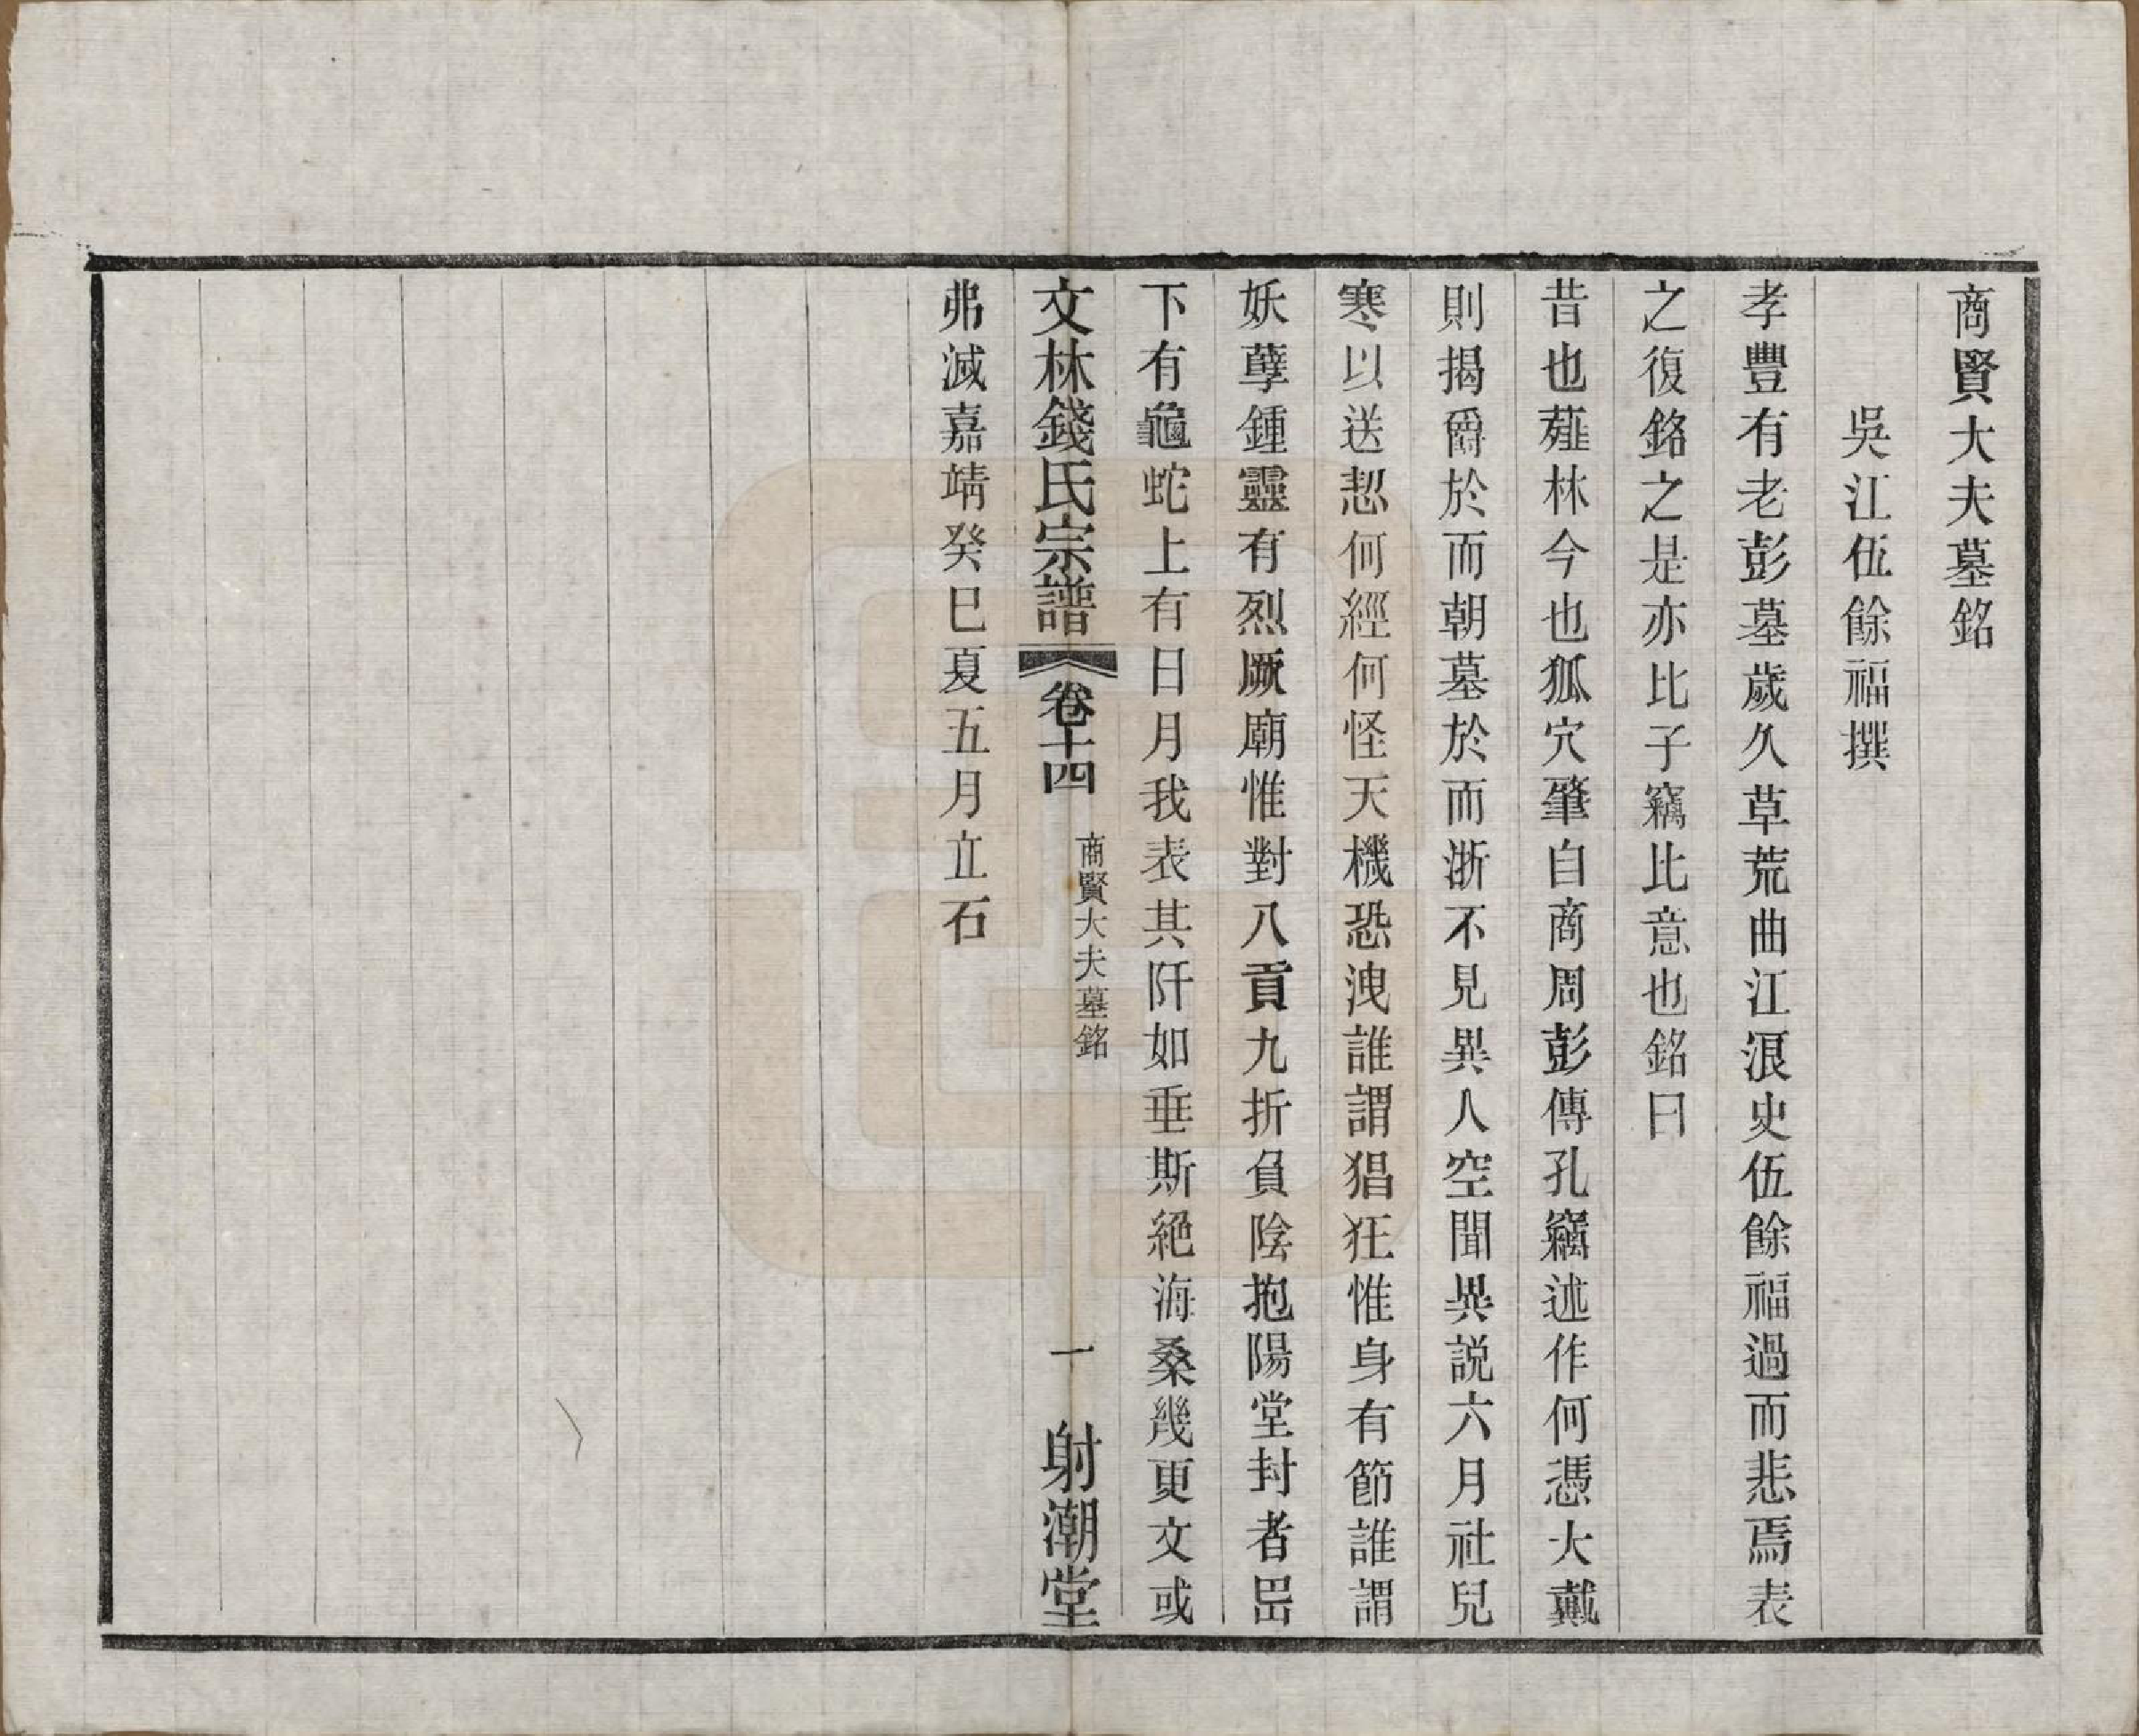 商賢大夫墓銘
吳江伍餘福撰
孝豐有老彭墓歲久草荒曲江浪史伍餘福過而悲焉表
之復銘之是亦比子竊比意也銘曰
昔也薤林今也狐穴肇自商周彭傳孔竊述作何憑大戴
則揭爵於而朝墓於而浙不見異人空聞異説六月社兒
寒以送恝何經何怪天機恐洩誰謂猖狂惟身有節誰謂
妖孽鍾靈有烈厥廟惟對八貢九折負陰抱陽堂封者岊
下有龜蛇上有日月我表其阡如垂斯絕海桑幾更文或
文林錢氏宗譜 卷十四 商賢大夫墓銘 一 射潮堂
弗滅嘉靖癸巳夏五月立石